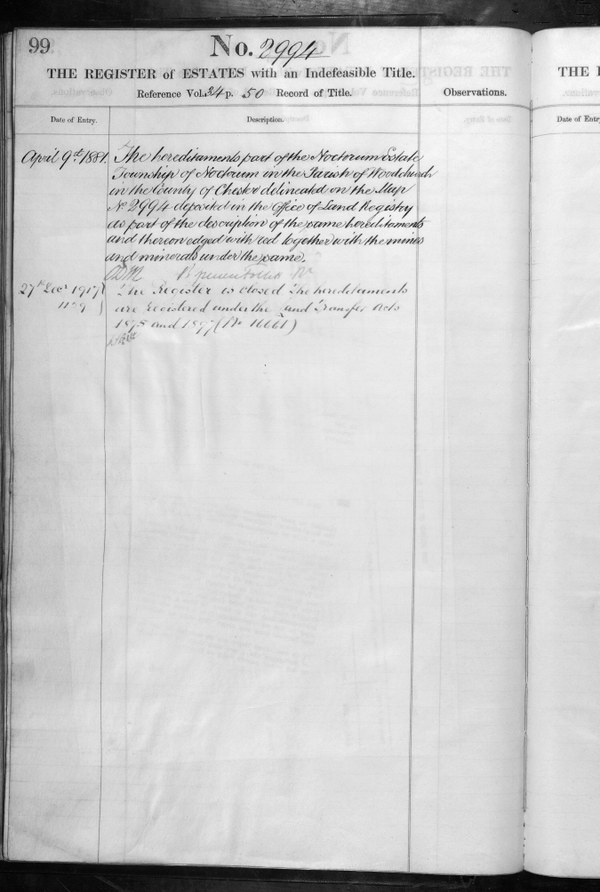 99
No. 2994
THE REGISTER of ESTATES with an Indefeasible Title.
Reference Vol. 34 p. 50 Record of Title.
Observations.
Date of Entry.
Description.
April 9th 1881.
The hereditaments part of the Noctorum Estate
Township of Noctorum in the Parish of Woodchurch
in the County of Chester delineated on the Map
No 2994 deposited in the Office of Land Registry
as part of the description of the same hereditaments
and thereon edged with red together with the mines
and minerals under the same.
27th Decr 1917
The Register is closed The hereditaments
are registered under the Land Transfer Acts
1875 and 1897 (No 16661)
THE
Date of Entry